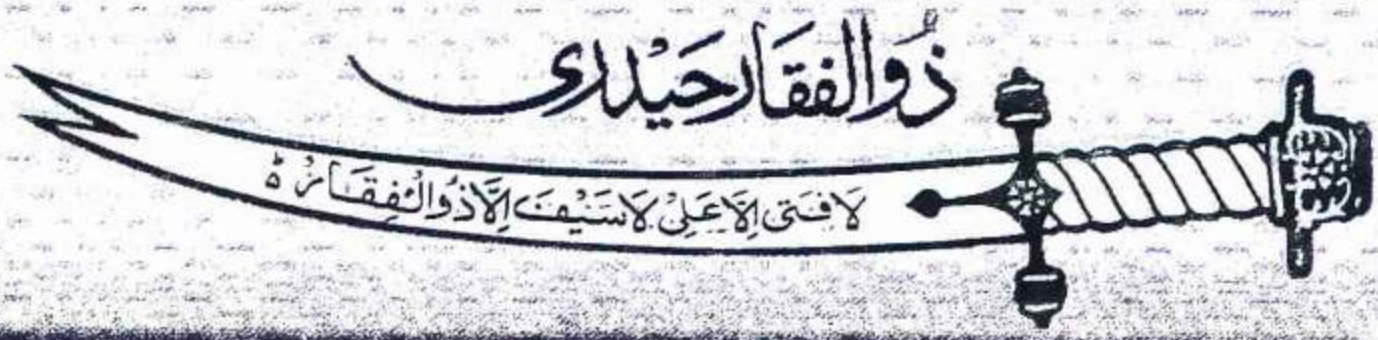 ذُوالفقَار حَیْدری
لَا فَتٰی اِلَّا عَلِیْ لَا سَیْفَ اِلَّا ذُوالْفِقَارْ ؕ